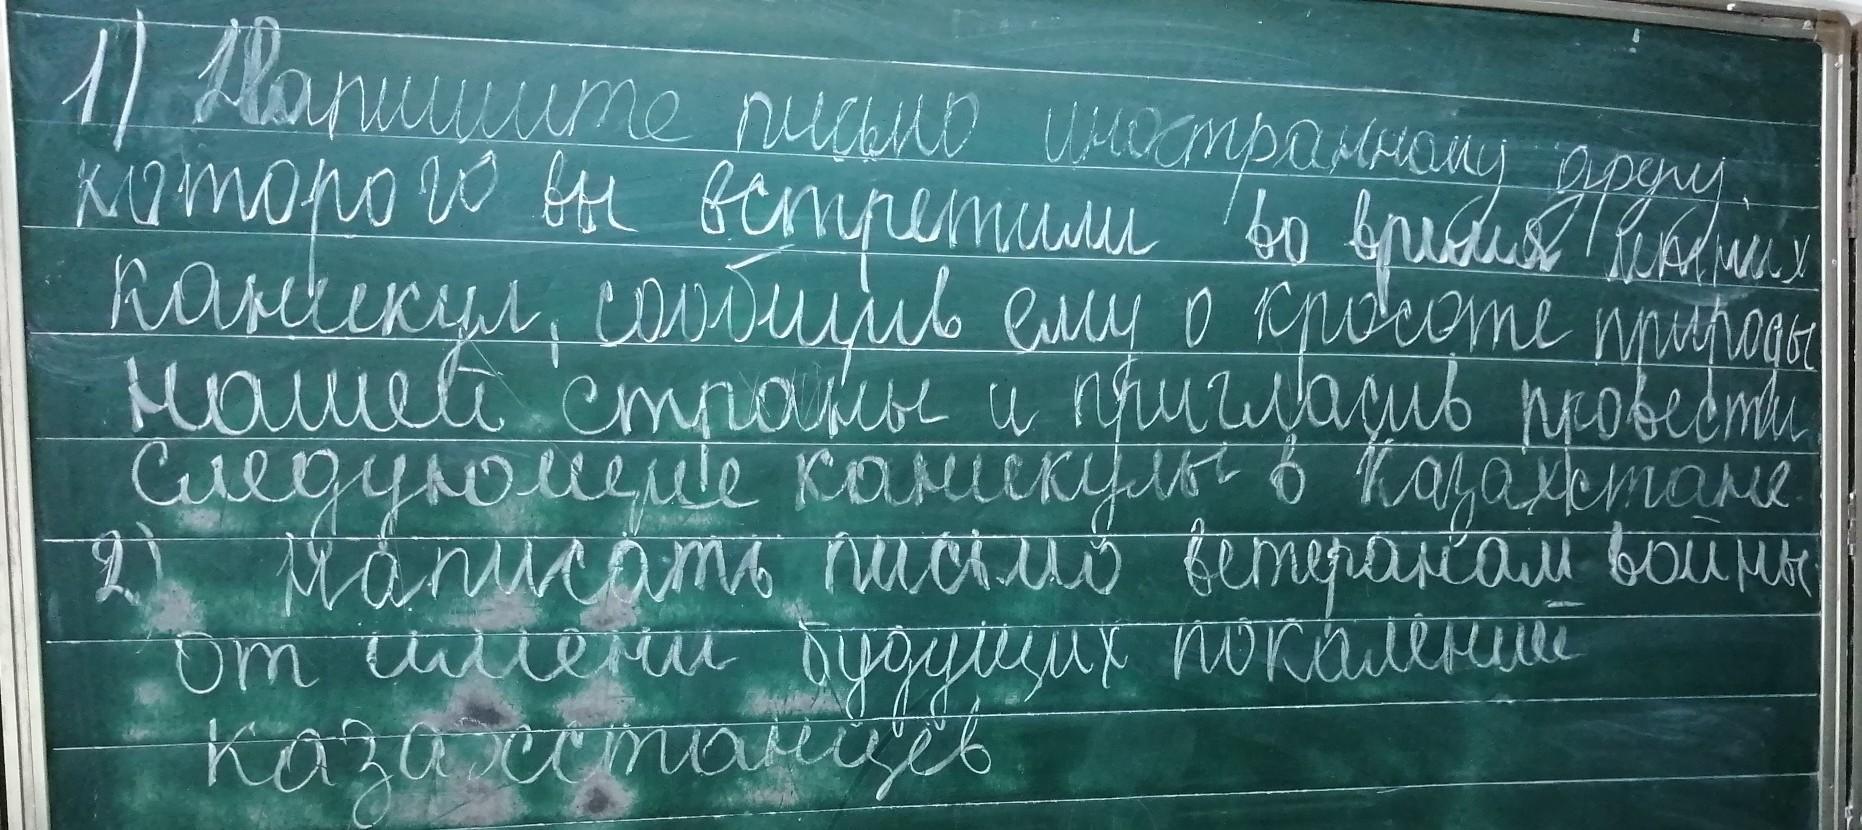 1) Напишите письмо иностранному другу,
которого вы встретили во время летних
каникул, сообщив ему о красоте природы
нашей страны и пригласив провести
следующие каникулы в Казахстане.
2) Написать письмо ветеранам войны
от имени будущих покалений
казахстанцев